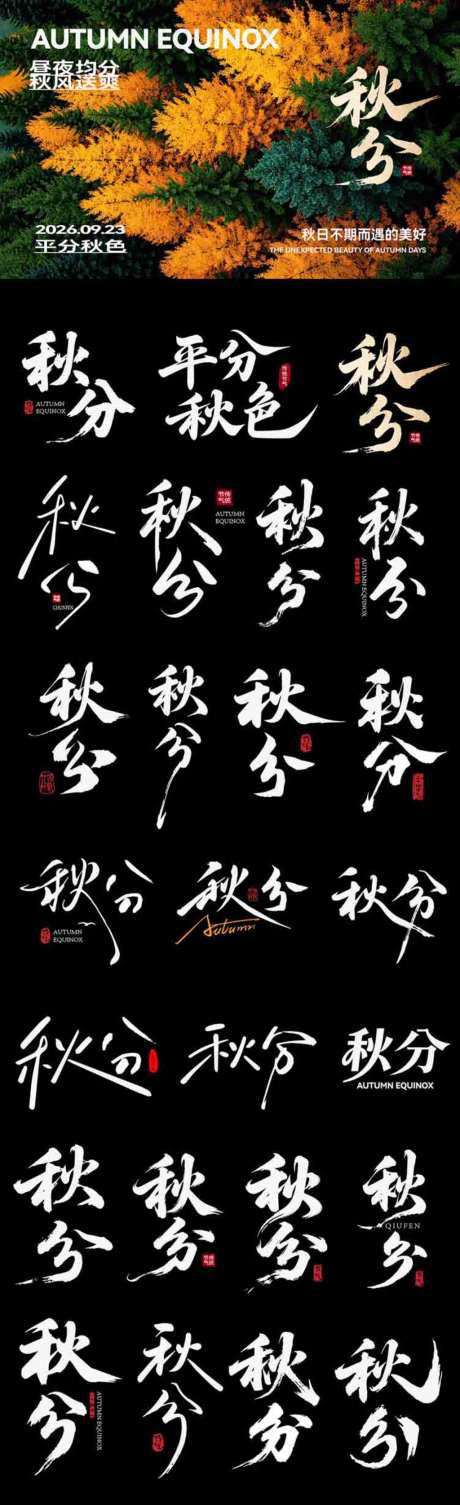 AUTUMN EQUINOX
昼夜均分
秋风送爽
秋分
传统节气
2026.09.23
平分秋色
秋日不期而遇的美好
THE UNEXPECTED BEAUTY OF AUTUMN DAYS
秋分
AUTUMN
EQUINOX
平分
秋色
传统节气
秋分
传统节气
秋分
秋分
传统节气
AUTUMN
EQUINOX
秋分
秋分
AUTUMN EQUINOX
秋分
秋分
秋分
秋分
秋分
AUTUMN
EQUINOX
秋分
Autumn
秋分
秋分
秋分
秋分
AUTUMN EQUINOX
秋分
秋分
传统节气
秋分
秋分
QIUFEN
秋分
AUTUMN EQUINOX
秋分
秋分
秋分